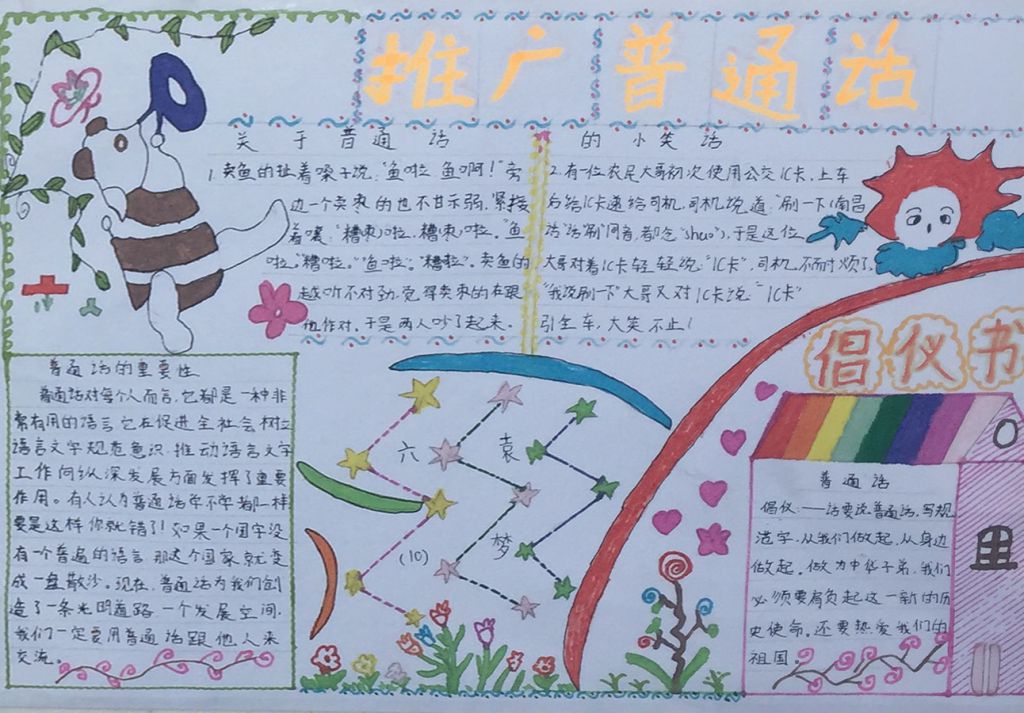 推广普通话
关于普通话的小笑话
1.卖鱼的扯着嗓子说:“鱼啦 鱼啊!”旁
边一个卖枣的也不甘示弱,紧接
着嚷:“糟枣啦,糟枣啦。”“鱼
啦。”“糟啦。”“鱼啦。”“糟啦”。卖鱼的
越听不对劲,觉得卖枣的在跟
他作对。于是两人吵了起来。
2.有一位农民大哥初次使用公交IC卡,上车
后给IC卡递给司机,司机说道:“刷一下(南昌
话“话”刷”同音,都念“shua”),于是这位
大哥对着IC卡轻轻说:“IC卡”,司机不耐烦了,
“我说刷一下”大哥又对IC卡说:“IC卡”
引全车,大笑不止!
普通话的重要性
普通话对每个人而言,它都是一种非
常有用的语言它在促进全社会树立
语言文字规范意识,推动语言文字
工作向纵深发展方面发挥了重要
作用。有人认为普通话学不学都一样
要是这样你就错了!如果一个国字没
有一个普遍的语言,那这个国家就变
成一盘散沙。现在,普通话为我们创
造了一条光明道路,一个发展空间,
我们一定要用普通话跟他人来
交流。
六
袁
(10)
梦
倡仪书
普通话
倡仪:——话要说普通话,写规
范字,从我们做起,从身边
做起。做为中华子弟,我们
必须要肩负起这一新的历
史使命。还要热爱我们的
祖国。